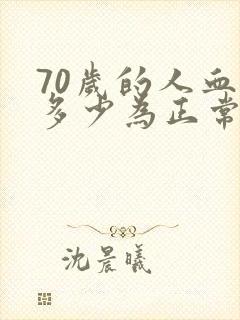 70歲的人血
多少為正常
沈晨曦